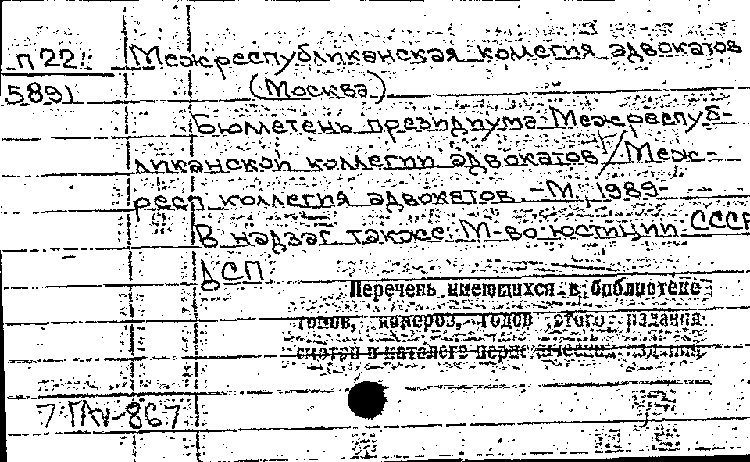 П 22/ Межреспубликанская коллегия адвокатов
5891 (Москва)
Бюллетень президиума Межреспуб-
ликанской коллегии адвокатов / Меж-
респ. коллегия адвокатов. - М., 1989-
В надзаг. также: М-во юстиции СССР
ДСП
Перечень имеющихся в библиотеке
томов, номеров, годов этого издания
смотри в каталоге периодических изданий
7 ПAV-867